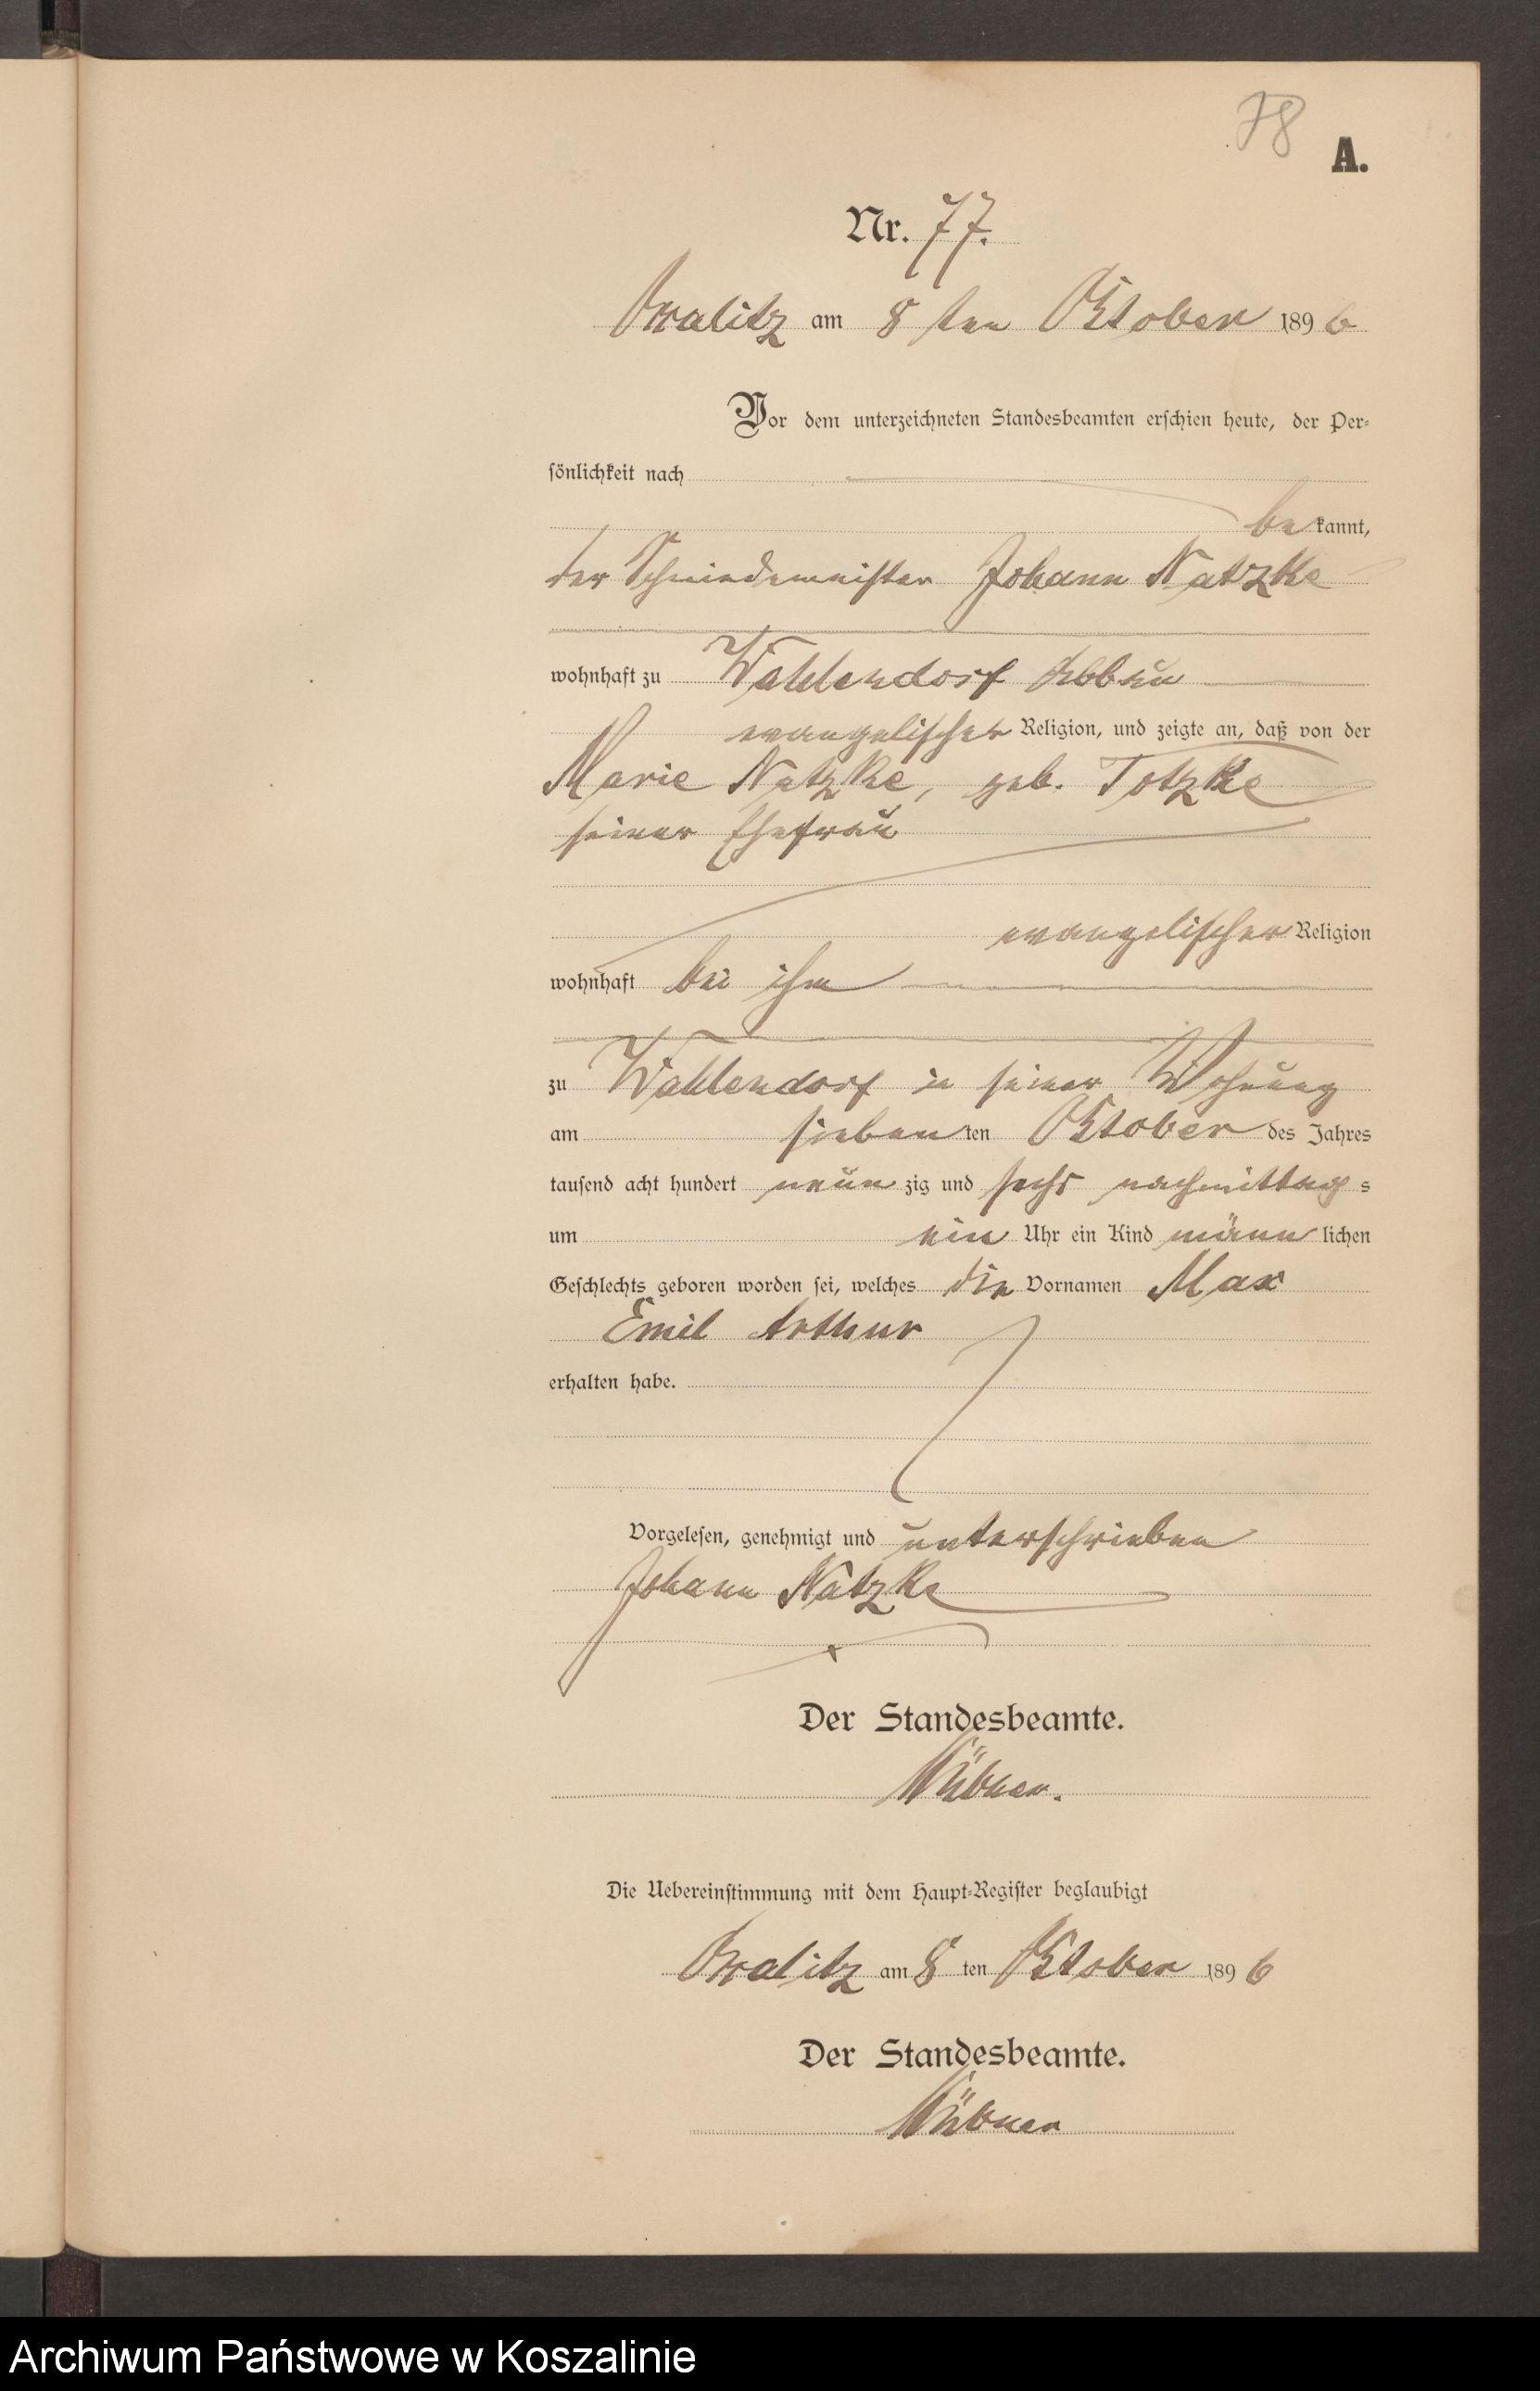 78
A.
Nr. 77.
am 8 ten Oktober 1896
Vor dem unterzeichneten Standesbeamten erschien heute, der Per-
sönlichkeit nach
be kannt,
der Schmiedemeister Johann Natzke
wohnhaft zu Wahlendorf
evangelischer Religion, und zeigte an, daß von der
Marie Natzke, geb. Totzke
seiner Ehefrau
evangelischer Religion
wohnhaft bei ihm
zu Wahlendorf in seiner Wohnung
am sieben ten Oktober des Jahres
tausend acht hundert neun zig und sechs nachmittag s
um ein Uhr ein Kind männ lichen
Geschlechts geboren worden sei, welches die Vornamen Max
Emil Arthur
erhalten habe.
Vorgelesen, genehmigt und unterschrieben
Johann Natzke
Der Standesbeamte.
Die Uebereinstimmung mit dem Haupt-Register beglaubigt
am 8 ten Oktober 1896
Der Standesbeamte.
Archiwum Państwowe w Koszalinie